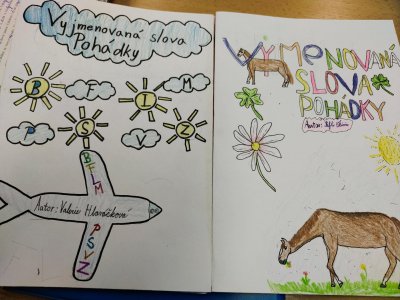 Vyjmenovaná slova
Pohádky
B F L M
P S V Z
B F L M P S V Z
Autor: Valerie Hlaváčková
VYJMENOVANÁ
SLOVA
POHÁDKY
Autor: